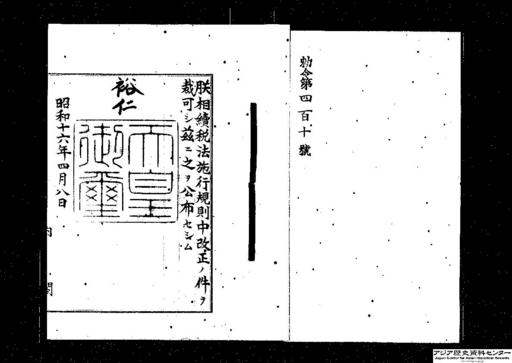 勅令第四百十號
朕相續税法施行規則中改正ノ件ヲ
裁可シ茲ニ之ヲ公布セシム
裕仁
天皇御璽
昭和十六年四月八日
内閣
アジア歴史資料センター
Japan Center for Asian Historical Records